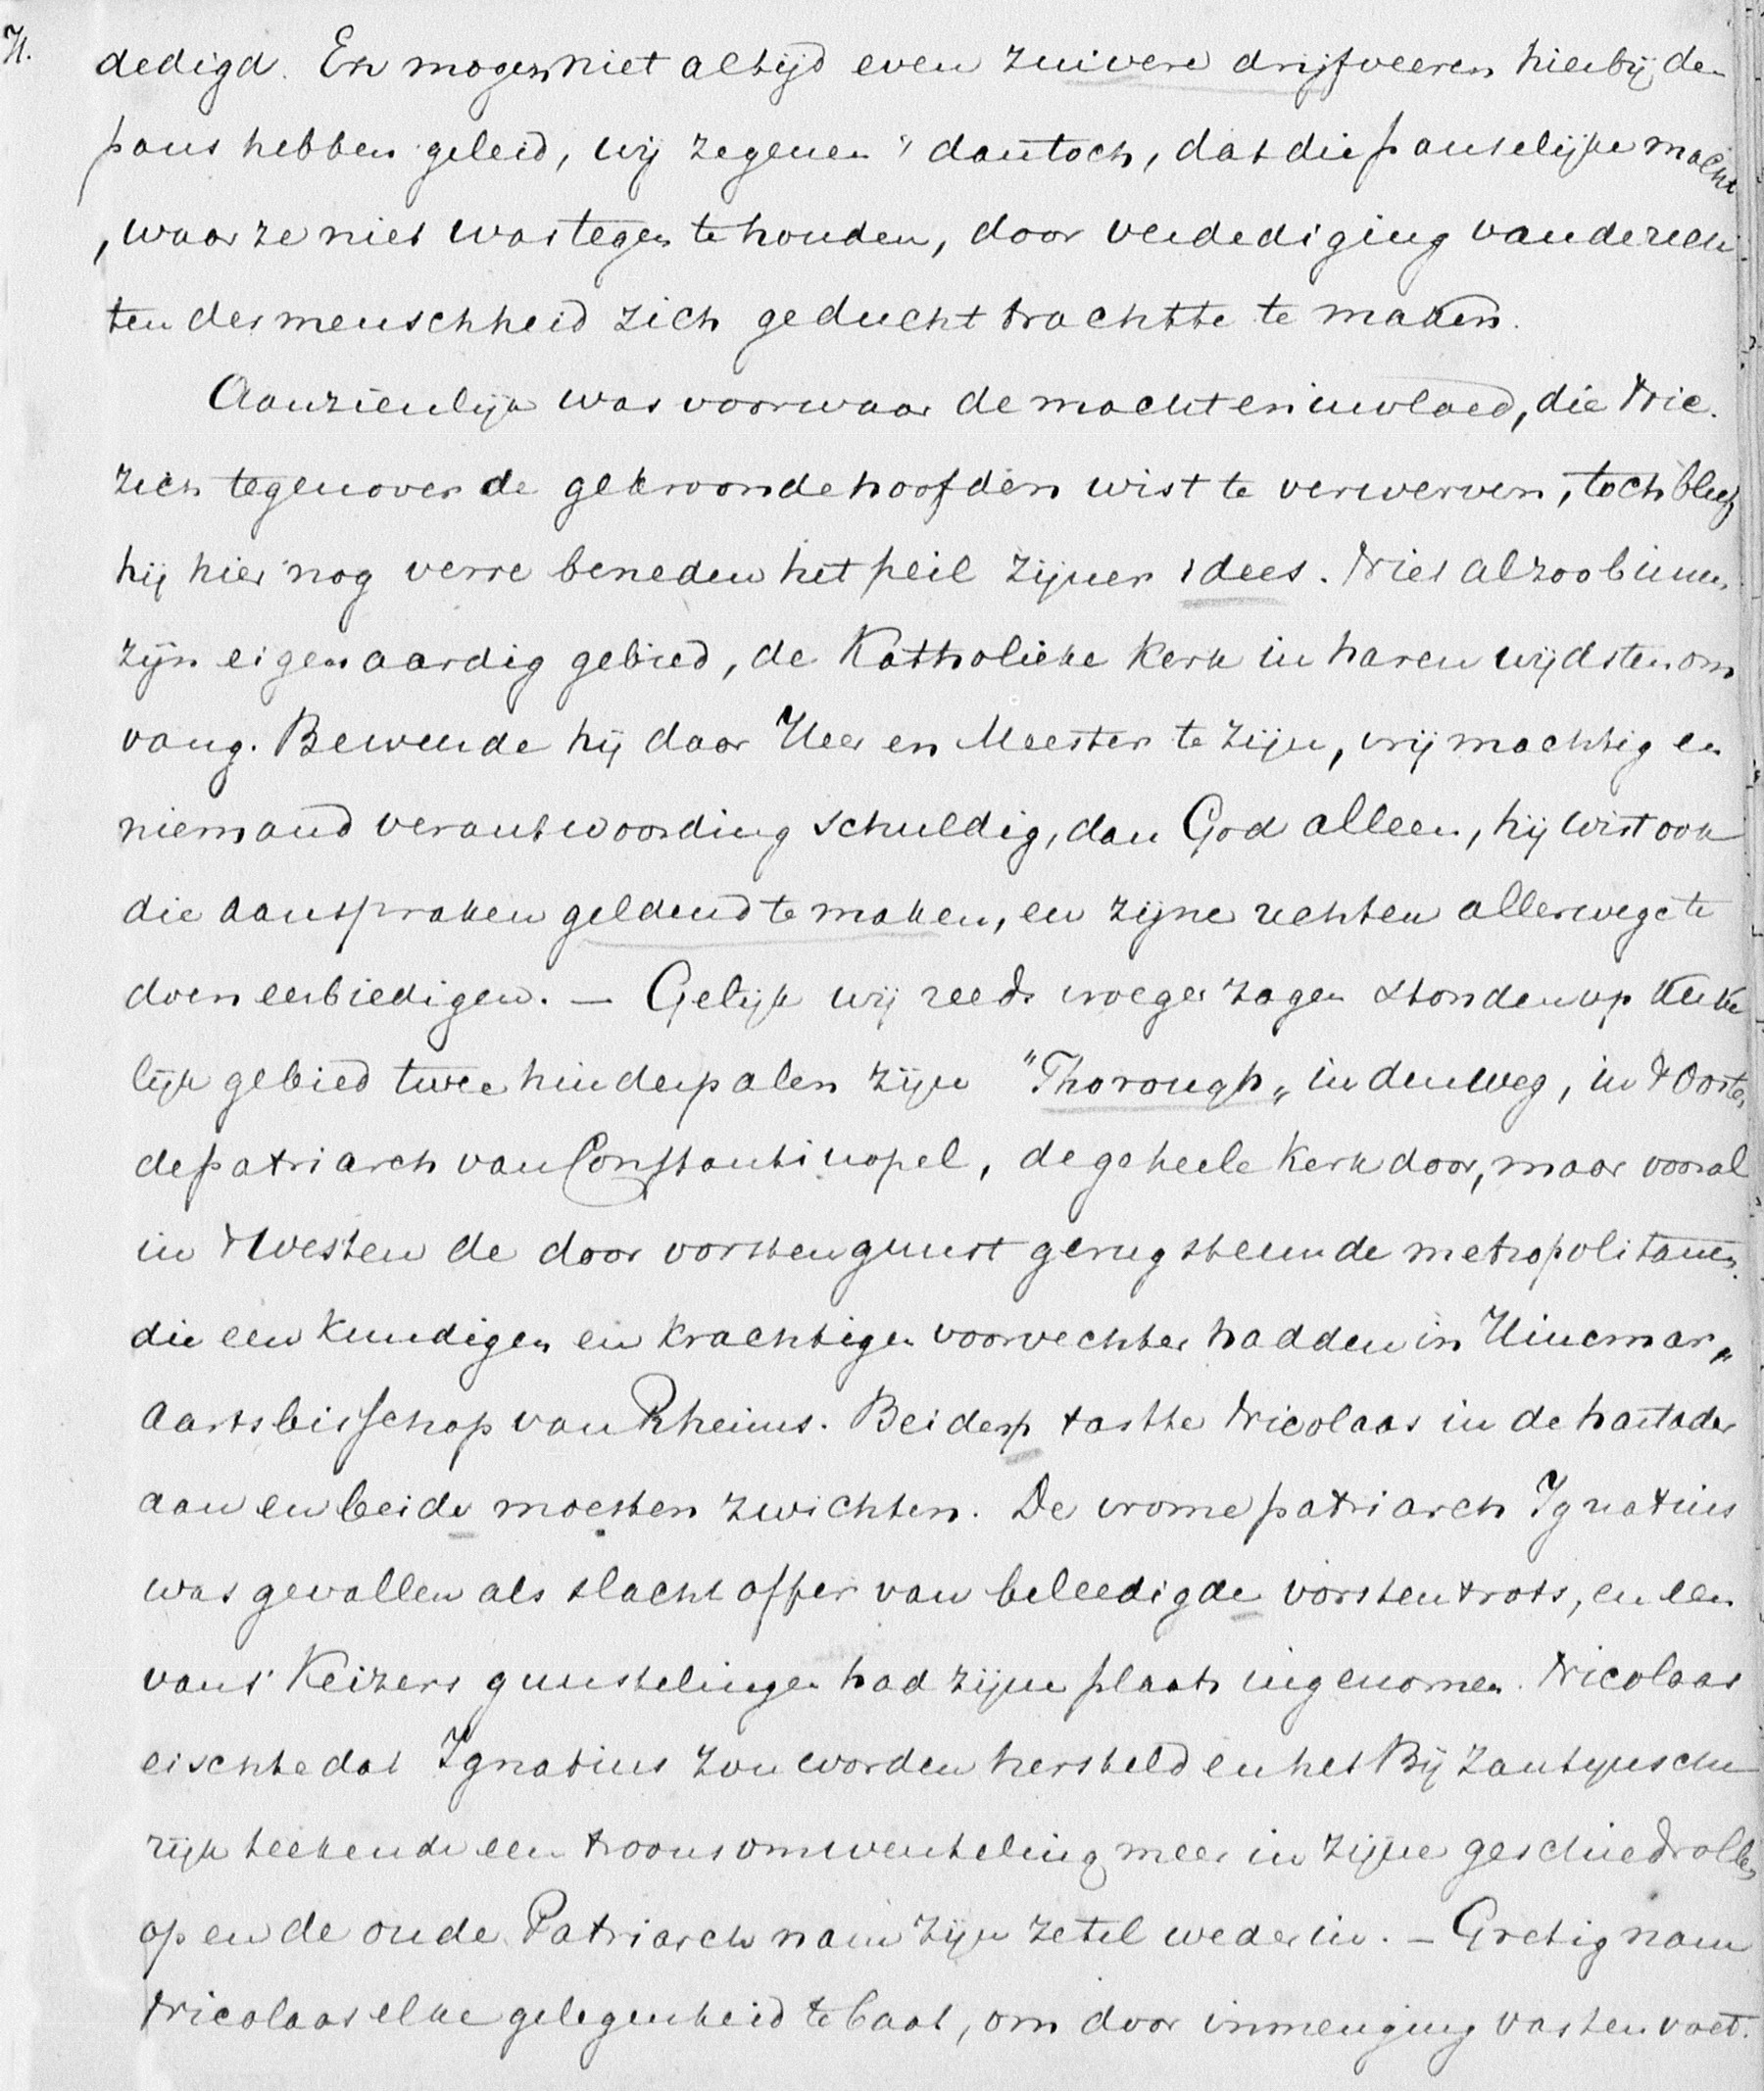 H.
dedigd. En mogen niet altijd even zuivere drijfveeren hierbij den
paus hebben geleid, wij zegenen 't dan toch, dat die pauselijke macht
, waar ze niet was tegen te houden, door verdediging van de rech
ten der menschheid zich geducht trachtte te maken.
Aanzienlijk was voorwaar de macht en invloed, die Nic.
zich tegenover de gekroonde hoofden wist te verwerven, toch bleef
hij hier nog verre beneden het peil zijner idees. Niet alzoo binnen
zijn eigenaardig gebied, de Katholieke Kerk in haren wijdsten om
vang. Beweerde hij daar Heer en Meester te zijn, vrijmachtig en
niemand verantwoording schuldig, dan God alleen, hij wist ook
die aanspraken geldend te maken, en zijne rechten allerwege te
doen eerbiedigen. — Gelijk wij reeds vroeger zagen stonden op kerke
lijk gebied twee hinderpalen zijn "Thorough" in den weg, in 't Oosten
de patriarch van Constantinopel, de geheele Kerk door, maar vooral
in 't Westen de door vorstengunst gerugsteunde metropolitanen
die een kundigen en krachtigen voorvechter hadden in Hincmar,
aartsbisschop van Rheims. Beiden tastte Nicolaas in de hartader
aan en beide moesten zwichten. De vrome patriarch Ignatius
was gevallen als slachtoffer van beleedigde vorstentrots, en een
van 's Keizers gunstelingen had zijne plaats ingenomen. Nicolaas
eischte dat Ignatius zou worden hersteld en het Bijzantijnsche
rijk teekende een troonsomwenteling meer in zijne geschiedrollen
op en de oude Patriarch nam zijn zetel weder in. — Gretig nam
Nicolaas elke gelegenheid te baat, om door inmenging vasten voet